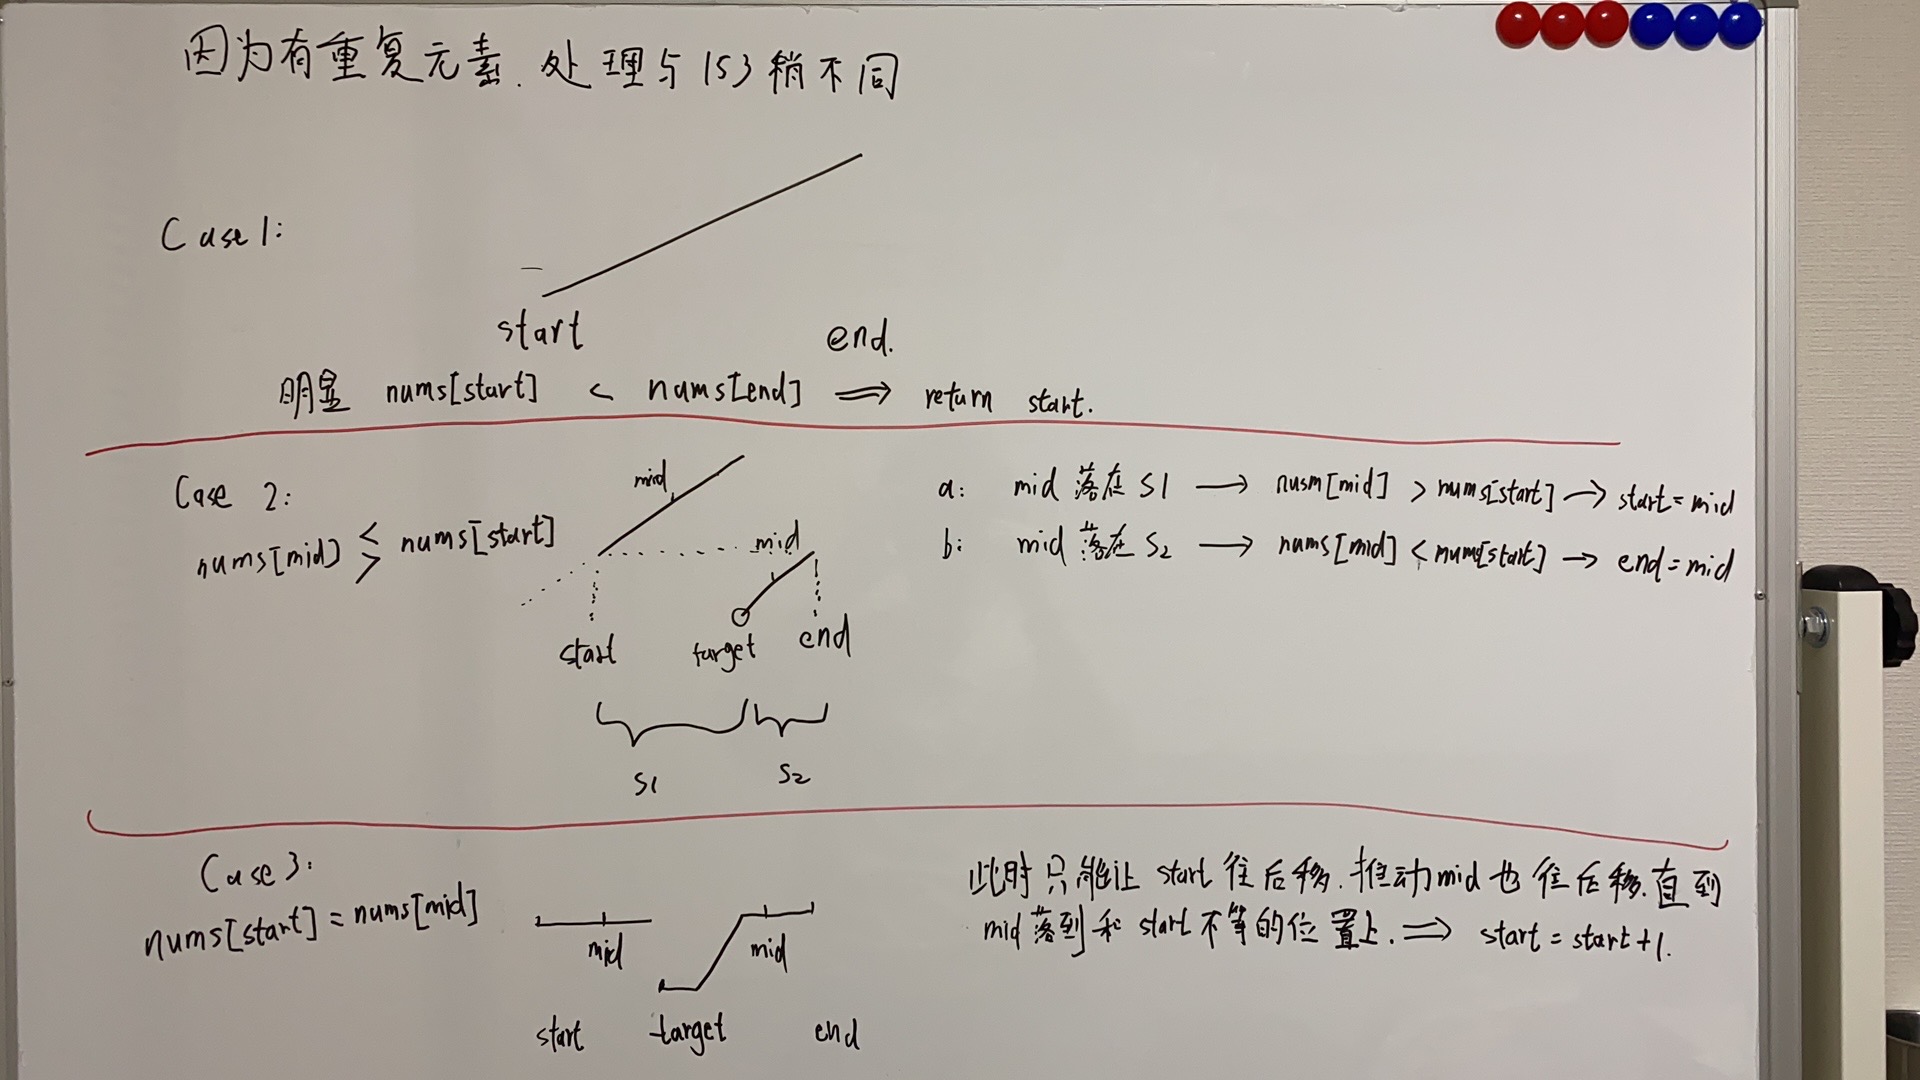 因为有重复元素.处理与153稍不同
Case 1:
start
end.
明显 nums[start] < nums[end] ⟹ return start.
Case 2:
nums[mid] ≶ nums[start]
mid
mid
start
target
end
S1
S2
a: mid 落在 S1 → nusm[mid] > nums[start] → start = mid
b: mid 落在 S2 → nums[mid] < nums[start] → end = mid
Case 3:
nums[start] = nums[mid]
mid
mid
start
target
end
此时只能让 start 往后移.推动mid也往后移.直到
mid落到和 start 不等的位置上. ⟹ start = start+1.